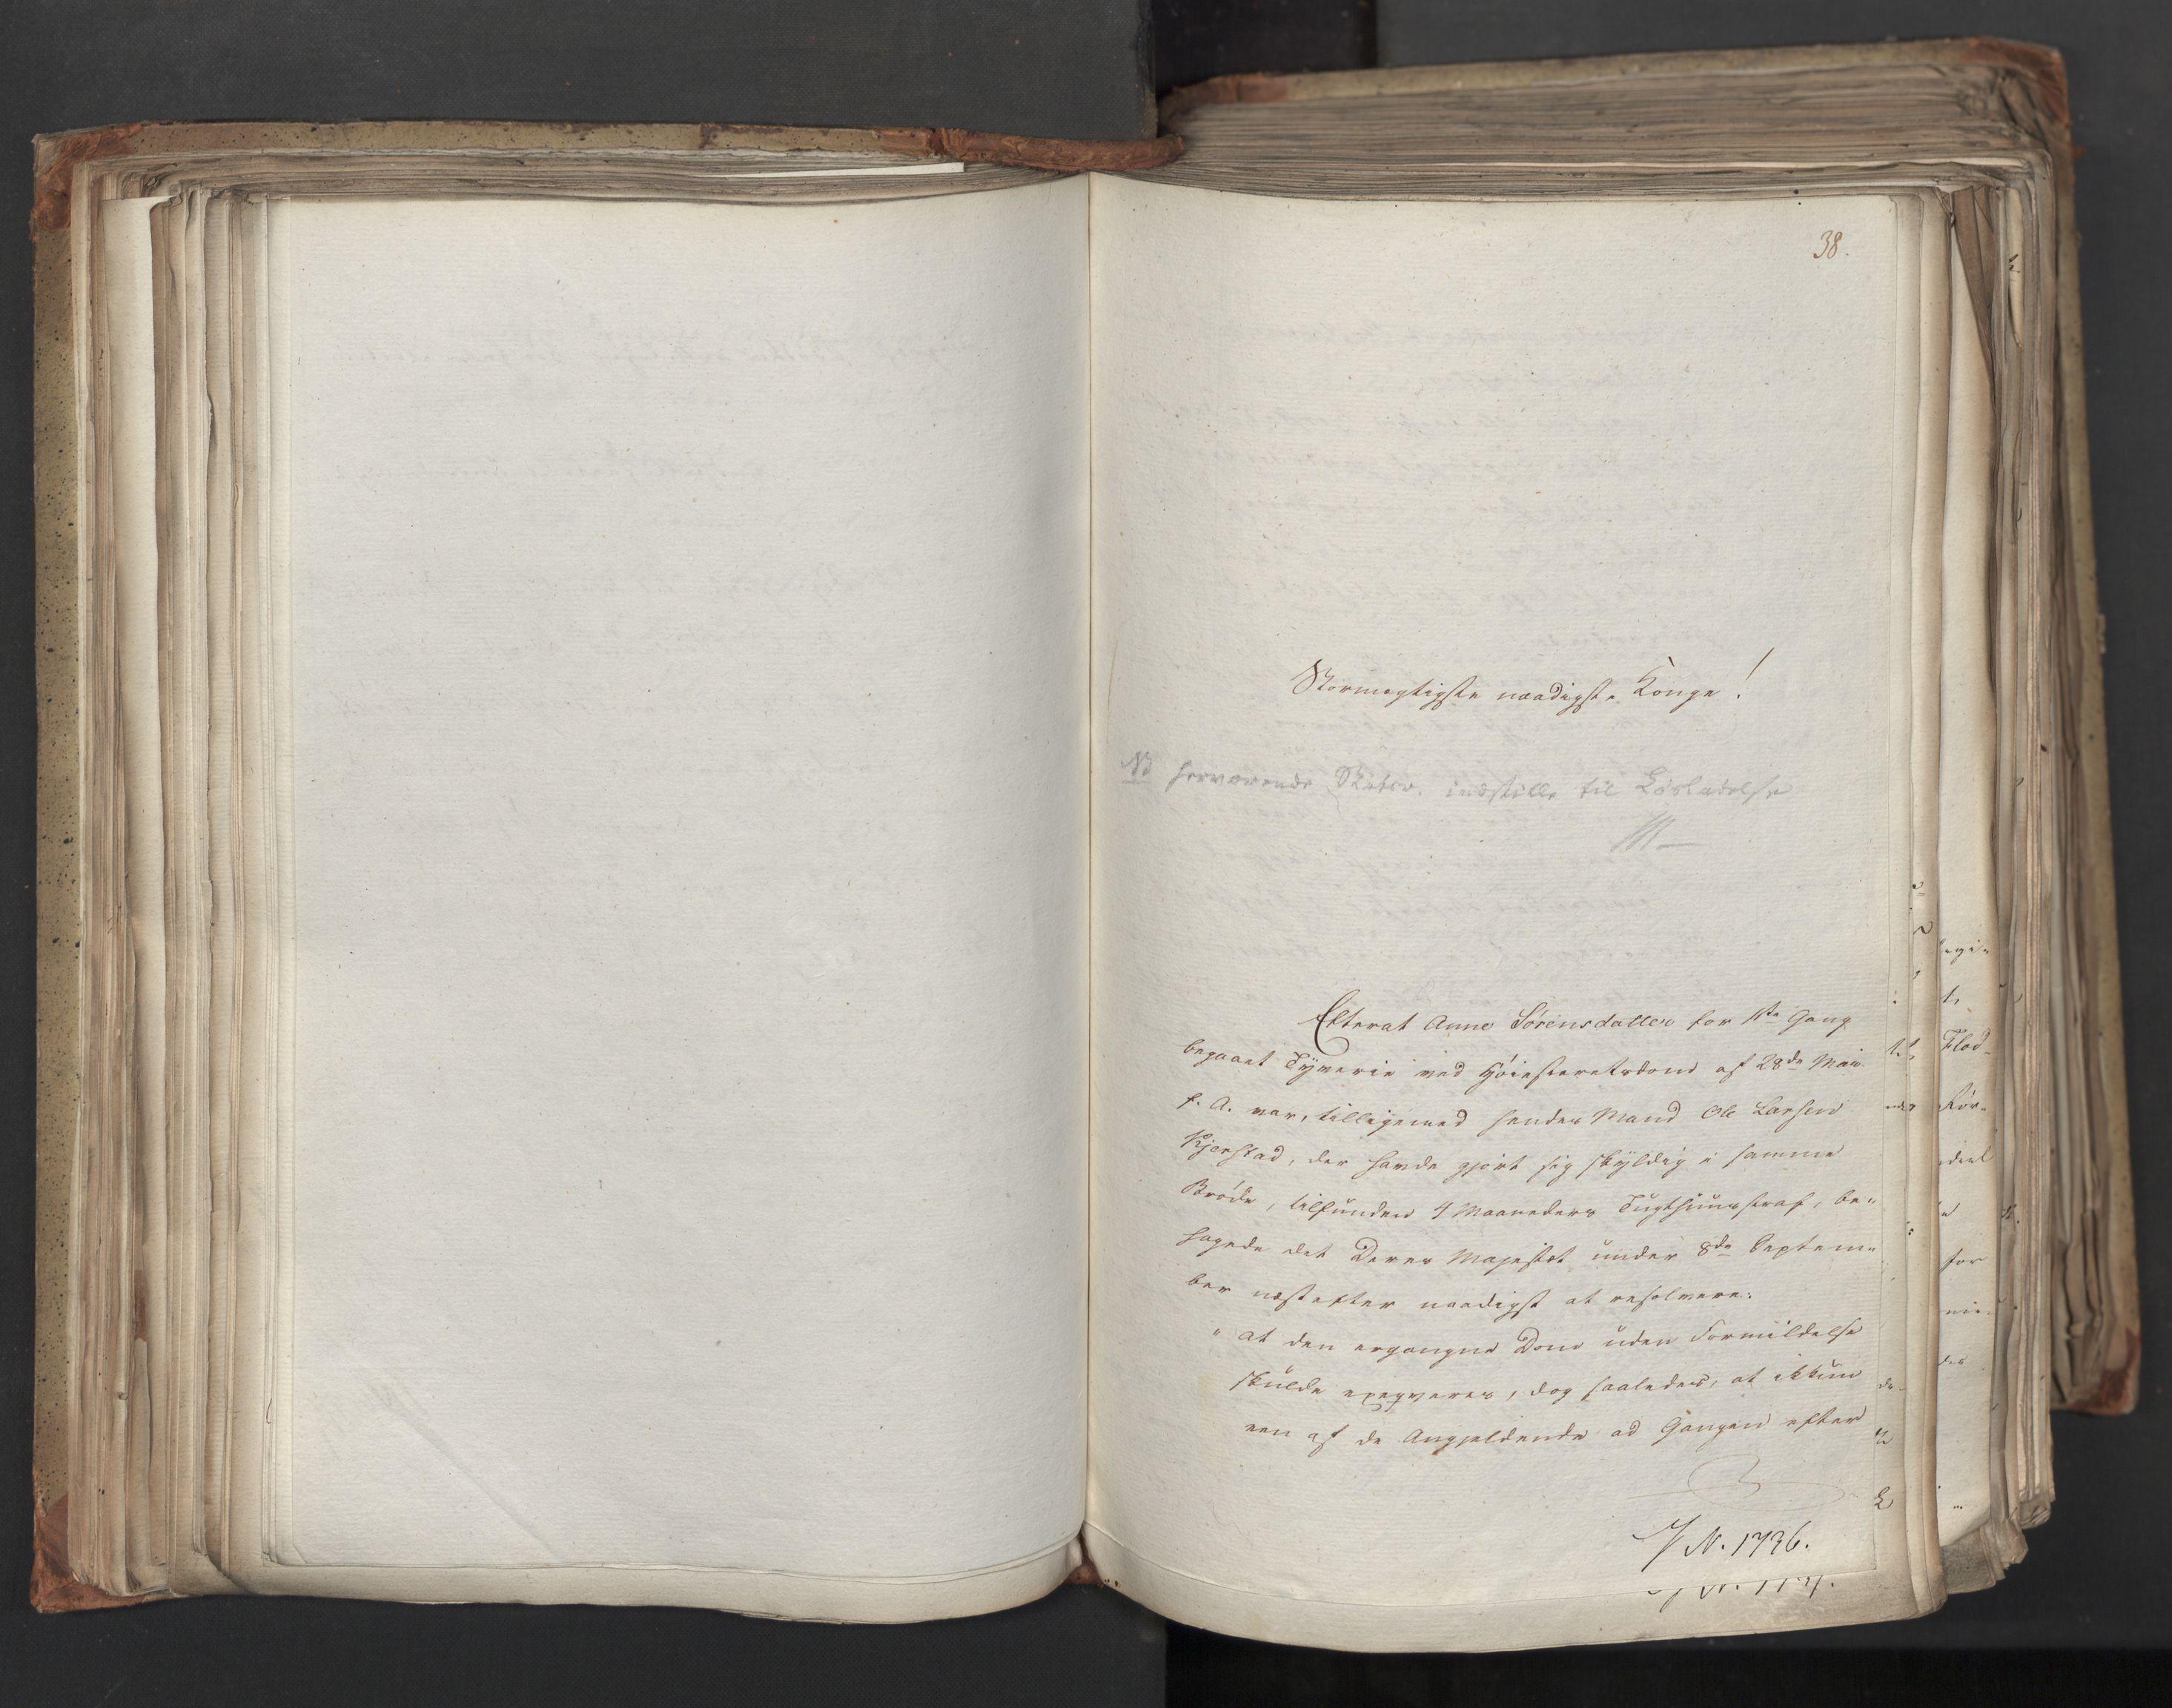 38.
Stormægtigste naadigste Konge!
NB herværende Skatsr. indstille til Løsladelse
Efterat Anne Sørensdatter for 1ste Gang
begaaet Tyverie ved Høiesteretsdom af 28de Mai
f. A. var, tilligemed hendes Mand Ole Larsen
Kjerstad, der havde gjort sig skyldig i samme
Brøde, tilfunden 4 Maaneders Tugthuusstraf, be„
hagede det Deres Majestæt under 8de Septem„
ber næstefter naadigst at resolvere:
„at den ergangne Dom uden Formildelse
skulde exeqveres, dog saaledes, at ikkun
een af de Angjeldende ad Gangen efter
J N. 1736.